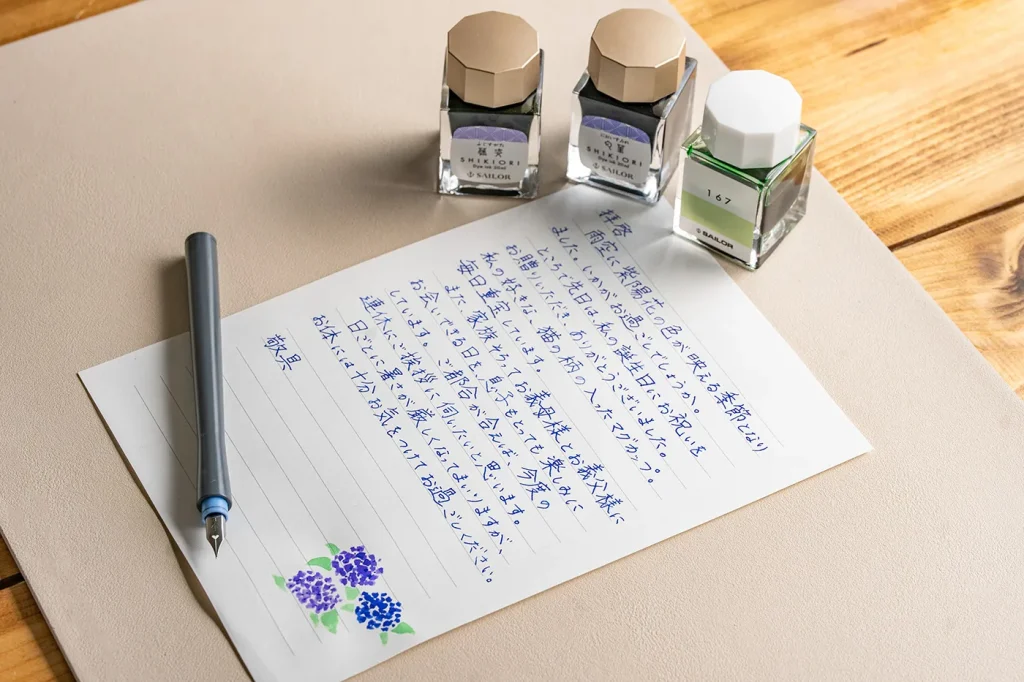 拝啓
雨空に紫陽花の色が映える季節となり
ました。いかがお過ごしでしょうか。
ところで先日は、私の誕生日にお祝いを
お贈りいただき、ありがとうございました。
私の好きな、猫の柄の入ったマグカップ。
毎日重宝しています。
また、家族そろってお義母様とお義父様に
お会いできる日を、息子もとっても楽しみに
しています。ご都合が合えば、今度の
連休にご挨拶に伺いたいと思います。
日ごとに暑さが厳しくなってまいりますが、
お体には十分お気をつけてお過ごしください。
敬具
SHIKIORI
Dye ink 20ml
SAILOR
SHIKIORI
Dye ink 20ml
SAILOR
167
SAILOR